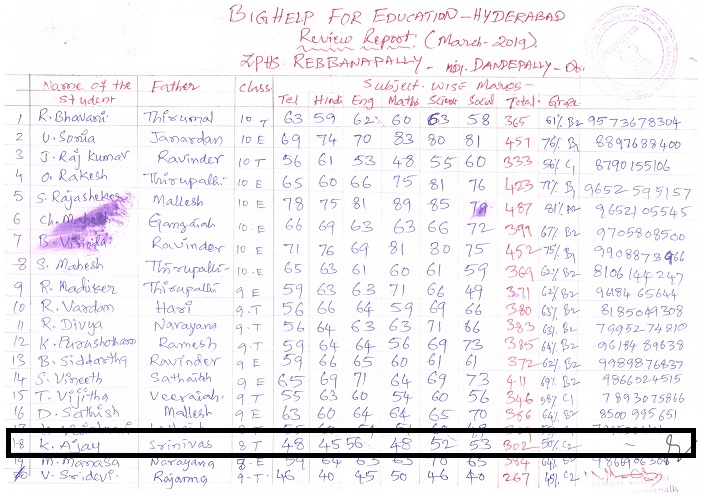 BIGHELP FOR EDUCATION - HYDERABAD
Review Report (March-2019).
ZPHS. REBBANAPALLY - DANDEPALLY -
Name of the Student Father class Subject wise Marks-
Tel Hindi Eng Maths Science Social Total Grade
1 R. Bhavani Thirumal 10 T 63 59 62 60 63 58 365 61% B2 9573678304
2 V. Sonia Janardan 10 E 69 74 70 83 80 81 457 76% B1 8897688400
3 J. Raj Kumar Ravinder 10 T 56 61 53 48 55 60 333 56% C1 8790155106
4 O. Rakesh Thirupathi 10 E 65 60 66 75 81 76 423 71% B1 9652595157
5 S. Rajasheker Mallesh 10 E 78 75 81 89 85 79 487 81% A2 9652105545
6 Ch. Mahesh Gangaiah 10 E 66 69 63 63 66 72 399 67% B2 9705808500
7 B. Ravinder 10 E 71 76 69 81 80 75 452 75% B1 9908873966
8 S. Mahesh Thirupathi 10 E 65 63 61 60 61 59 369 62% B2 8106144247
9 R. Thirupathi 9 E 59 63 63 71 66 49 371 62% B2 9618465644
10 R. Vardan Hari 9 T 56 66 64 59 69 66 380 63% B2 8185049308
11 R. Divya Narayana 9 T 56 64 63 63 71 86 383 B2 7995274810
12 K. Purushotham Ramesh 9 T 59 64 64 56 69 73 385 64% B2 9618489638
13 B. Siddartha Ravinder 9 E 59 66 65 60 61 61 372 62% B2 9989876837
14 S. Vineeth Sathaiah 9 E 65 69 71 64 69 73 411 69% B2 9866024515
15 T. Vijitha Veeraiah 9 T 55 63 60 54 60 56 346 58% C1 7893075866
16 D. Sathish Mallesh 9 E 63 60 64 64 65 70 B2 8500995651
18 K. Ajay Srinivas 8 T 48 45 56 48 52 53 302 50% C2 -
19 M. Manasa Narayana 64 63 65 384 64% B2
20 V. Sridevi Rajanna 9-T 46 40 45 50 46 40 267 45% C2